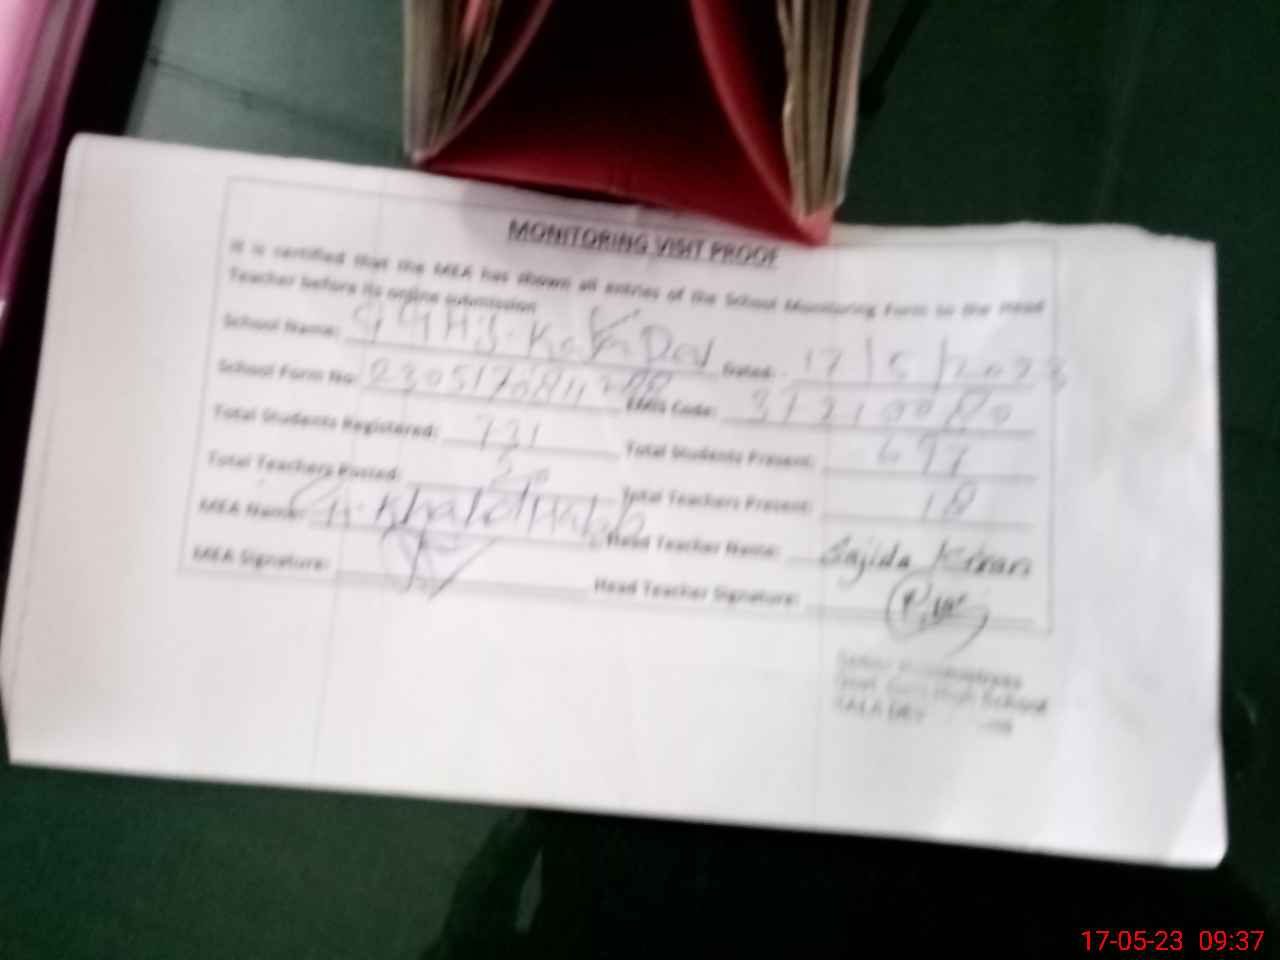 MONITORING VISIT PROOF
It is certified that the MEA has shown all entries of the School Monitoring Form to the Head
Teacher before its online submission
School Name: GGHS Dated: 17/5/2023
School Form No: EMIS Code:
Total Students Registered: 731 Total Students Present: 697
Total Teachers Posted: 20 Total Teachers Present: 18
MEA Name: Ch. Khalid Head Teacher Name: Sajida Kiran
MEA Signature: Head Teacher Signature:
Govt. Girls High School
17-05-23 09:37